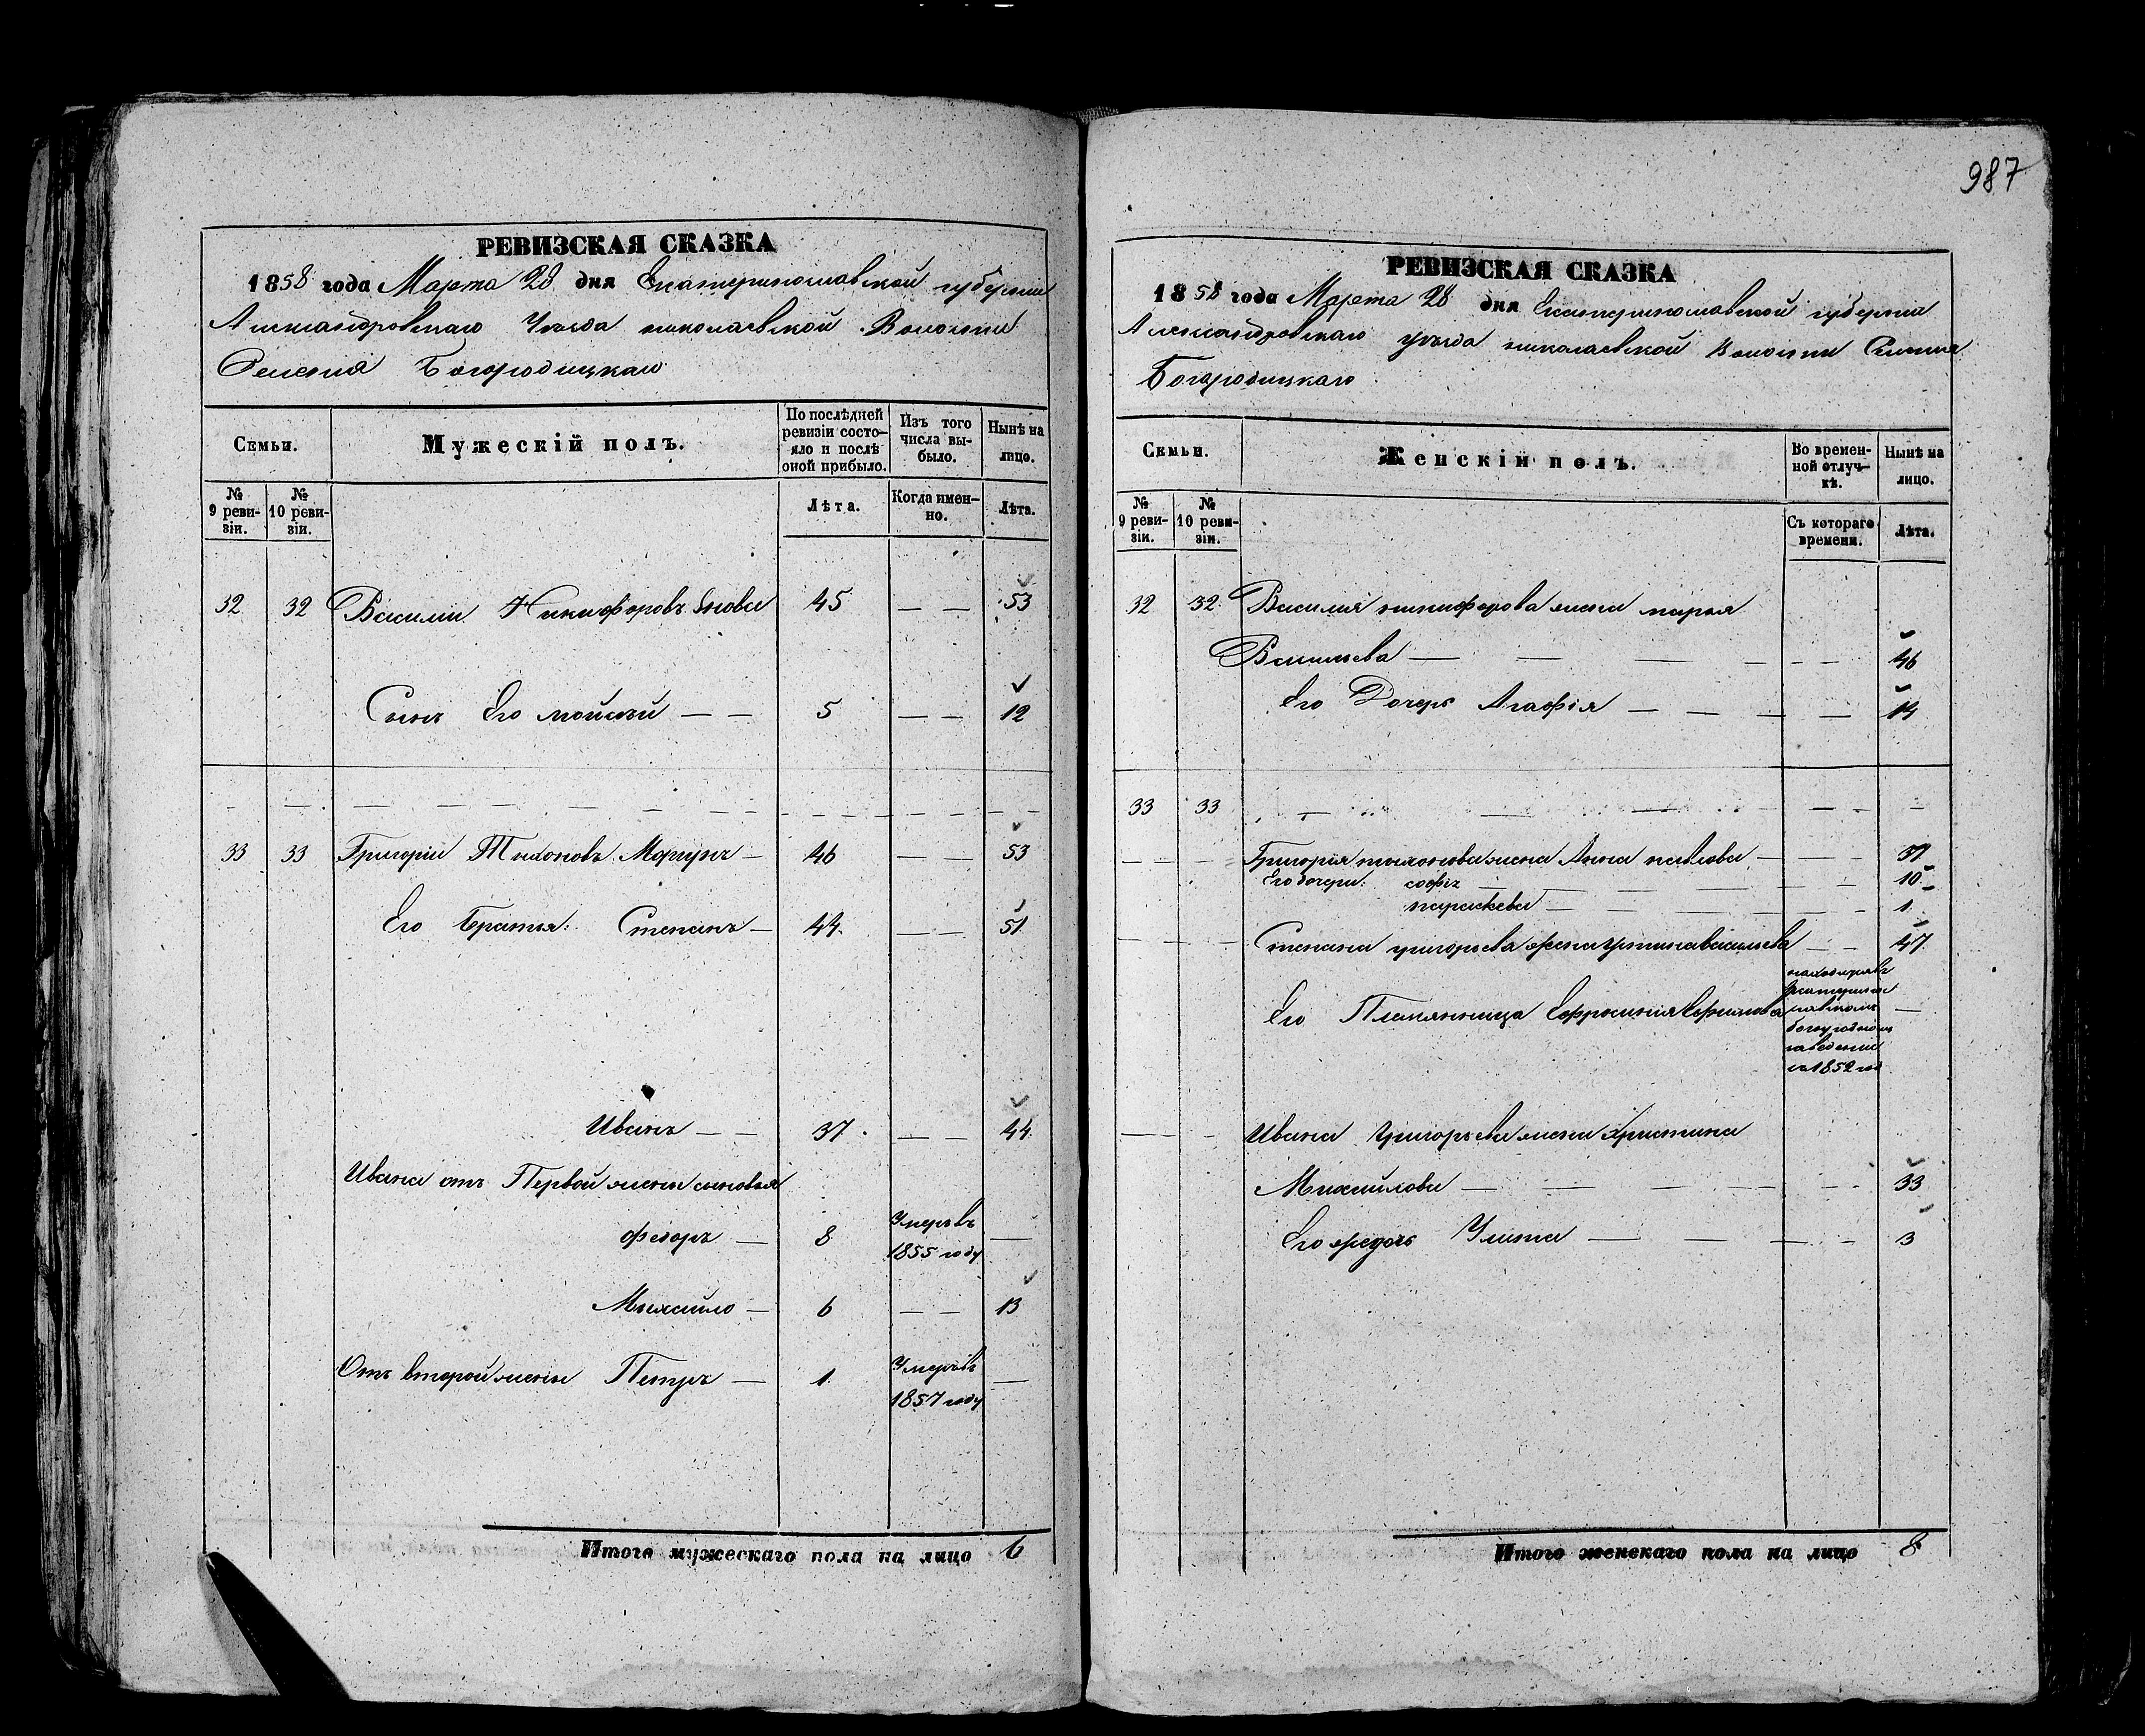 987
РЕВИЗСКАЯ СКАЗКА
1858 года Марта 28 дня Екатеринославской губернии
Александровскаго Уѣзда николаевской Волости
Селенія Богородицкаго
Семьи.
Мужескій полъ.
По послѣдней ревизіи состо-
яло и послѣ
оной прибыло.
Изъ того
числа вы-
было.
Нынѣ на
лицо.
№
9 реви-
зіи.
№
10 реви-
зіи.
Лѣта.
Когда имен-
но.
Лѣта.
32 32 Василий Никифоровъ 45 — — 53
Сынъ Его мойсѣй — — 5 — — 12
33 33 Григорій Тихоновъ Моргунъ — 46 — — 53
Его Братья: Степанъ — 44 — — 51
Иванъ — — 37 — — 44
Ивана отъ Первой жены сыновья
Федоръ — 8 Умеръ въ
1855 году —
Михайло — 6 — — 13
Отъ второй жены Петръ — 1 Умеръ въ
1857 году —
Итого мужескаго пола на лицо 6
РЕВИЗСКАЯ СКАЗКА
1858 года Марта 28 дня Екатеринославской губерніи
Александровскаго уѣзда николаевской Волости Селенія
Богородицкаго
Семьи.
Женскій полъ.
Во времен-
ной отлуч-
кѣ.
Нынѣ на
лицо.
№
9 реви-
зіи.
№
10 реви-
зіи.
Съ котораго
времени.
Лѣта.
32 32 Василия никифорова жена марья
Васильева — — — — — — 46
Его Дочерь Агафія — — — — 14
33 33
Григорія тихонова жена Анна павлова — — — 37
Его дочери: софія — — — — 10
параскева — — — — 1
Степана григорьева жена устина васильева — — 47
Его Племянница Ефросинія Ефимова
находится въ
Екатерино
славском
богоугодном
заведении
съ 1852 год —
Ивана Григорьева жена Христина
Михайлова — — — — — — 33
Его Улита — — — — — 3
Итого женскаго пола на лицо 8